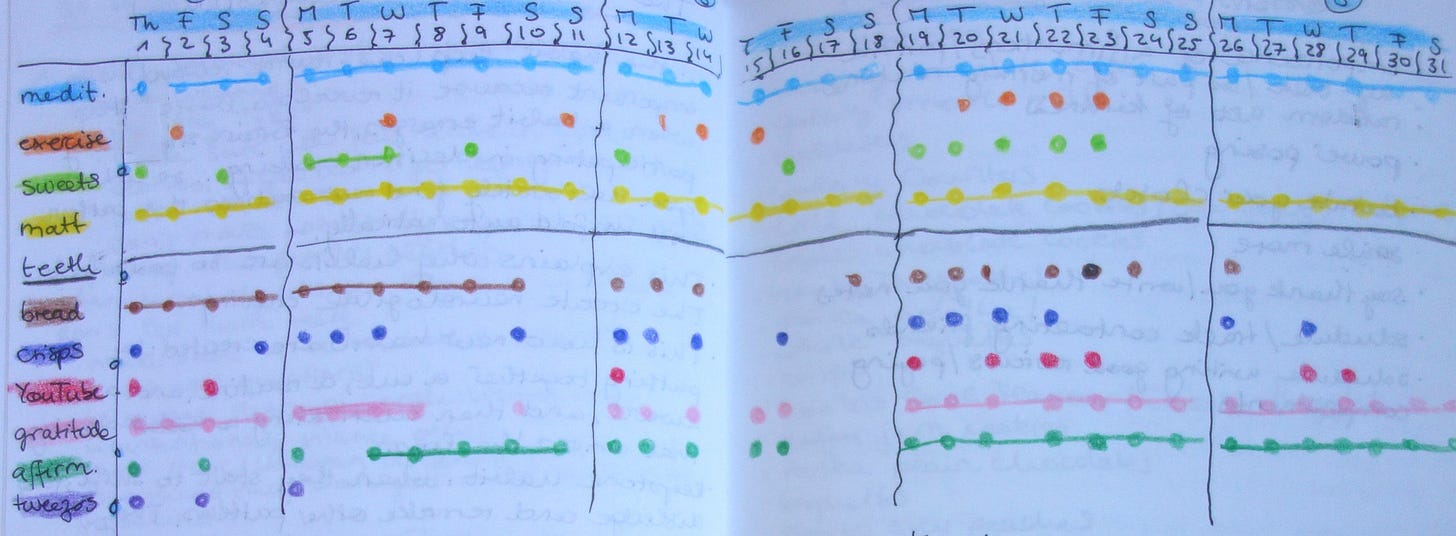 Th F S S M T W T F S S M T W
1 2 3 4 5 6 7 8 9 10 11 12 13 14
T F S S M T W T F S S M T W T F S
15 16 17 18 19 20 21 22 23 24 25 26 27 28 29 30 31
medit.
exercise
sweets
matt
teeth
bread
crisps
YouTube
gratitude
affirm.
tweezers